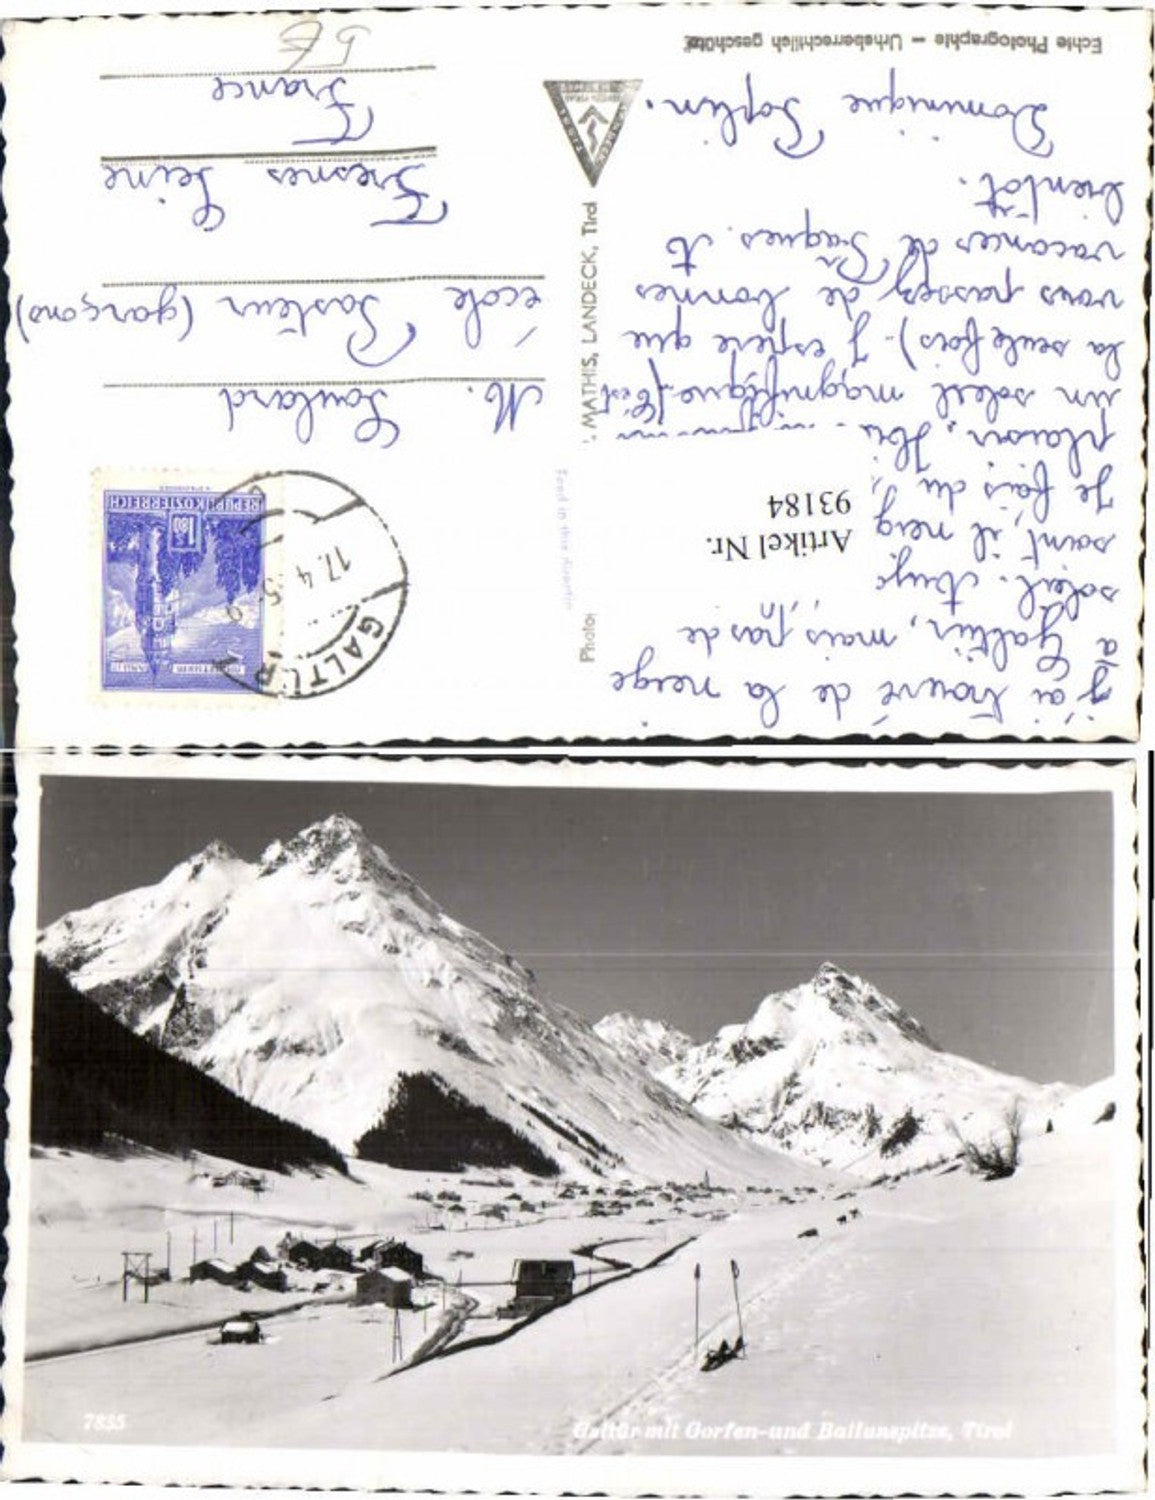 J'ai trouvé de la neige
à Galtür, mais pas de
soleil.
saint, il neig
Je fais du
plaisir.
un soleil magnifique (C'est
la seule fois). J'espère que
vous passez de bonnes
vacances de Pâques. A
bientôt.
Dominique
Artikel Nr.
93184
Echte Photographie – Urheberrechtlich geschützt
Photo:
MATHIS, LANDECK, Tirol
REPUBLIK ÖSTERREICH
1.80
GALTÜR
17. 4. 5
M. Soulard
école Pasteur (garçons)
Fresnes Seine
France
7835
Galtür mit Gorfen-und Ballunspitze, Tirol